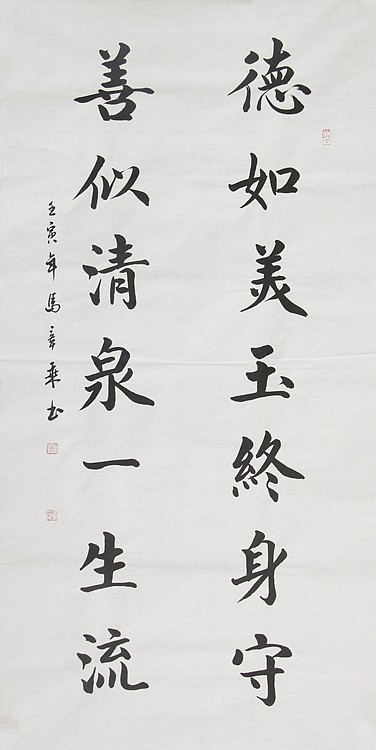 德如美玉終身守
善似清泉一生流
壬寅年馬章乘书